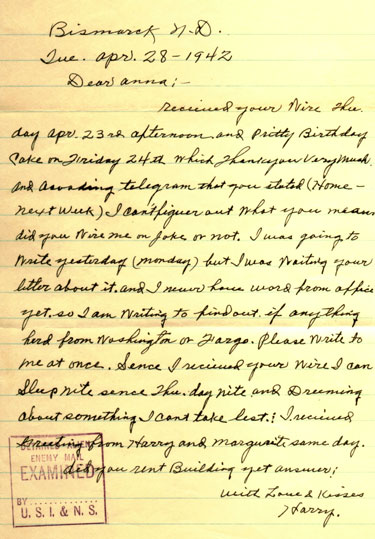 Bismarck N.D.
Tue. Apr. 28 - 1942
Dear Anna;-
received your Wire Thu.
day Apr. 23rd afternoon and Pritty Birthday
Cake on Friday 24th Which Thank you Very Much
and Accoding telegram that you stated (Home-
next Week) I cant figuer out What you means
did you Wire me on Joke or not. I was going to
Write yesterday (monday) but I was Waiting your
letter about it. and I never have word from office
yet. so I am Writing to find out. if anything
herd from Washington or Fargo. Please Write to
me at once. Sence I recived your Wire I can
Sleep Nite sence Thu. day Nite and Dreeming
about something I cant take lest.: I recived
Greeting from Harry and Margurite same day.
did you rent Building yet answer;
With Love & Kisses
Harry.
ENEMY MAIL
EXAMINED
BY
U. S. I. & N. S.